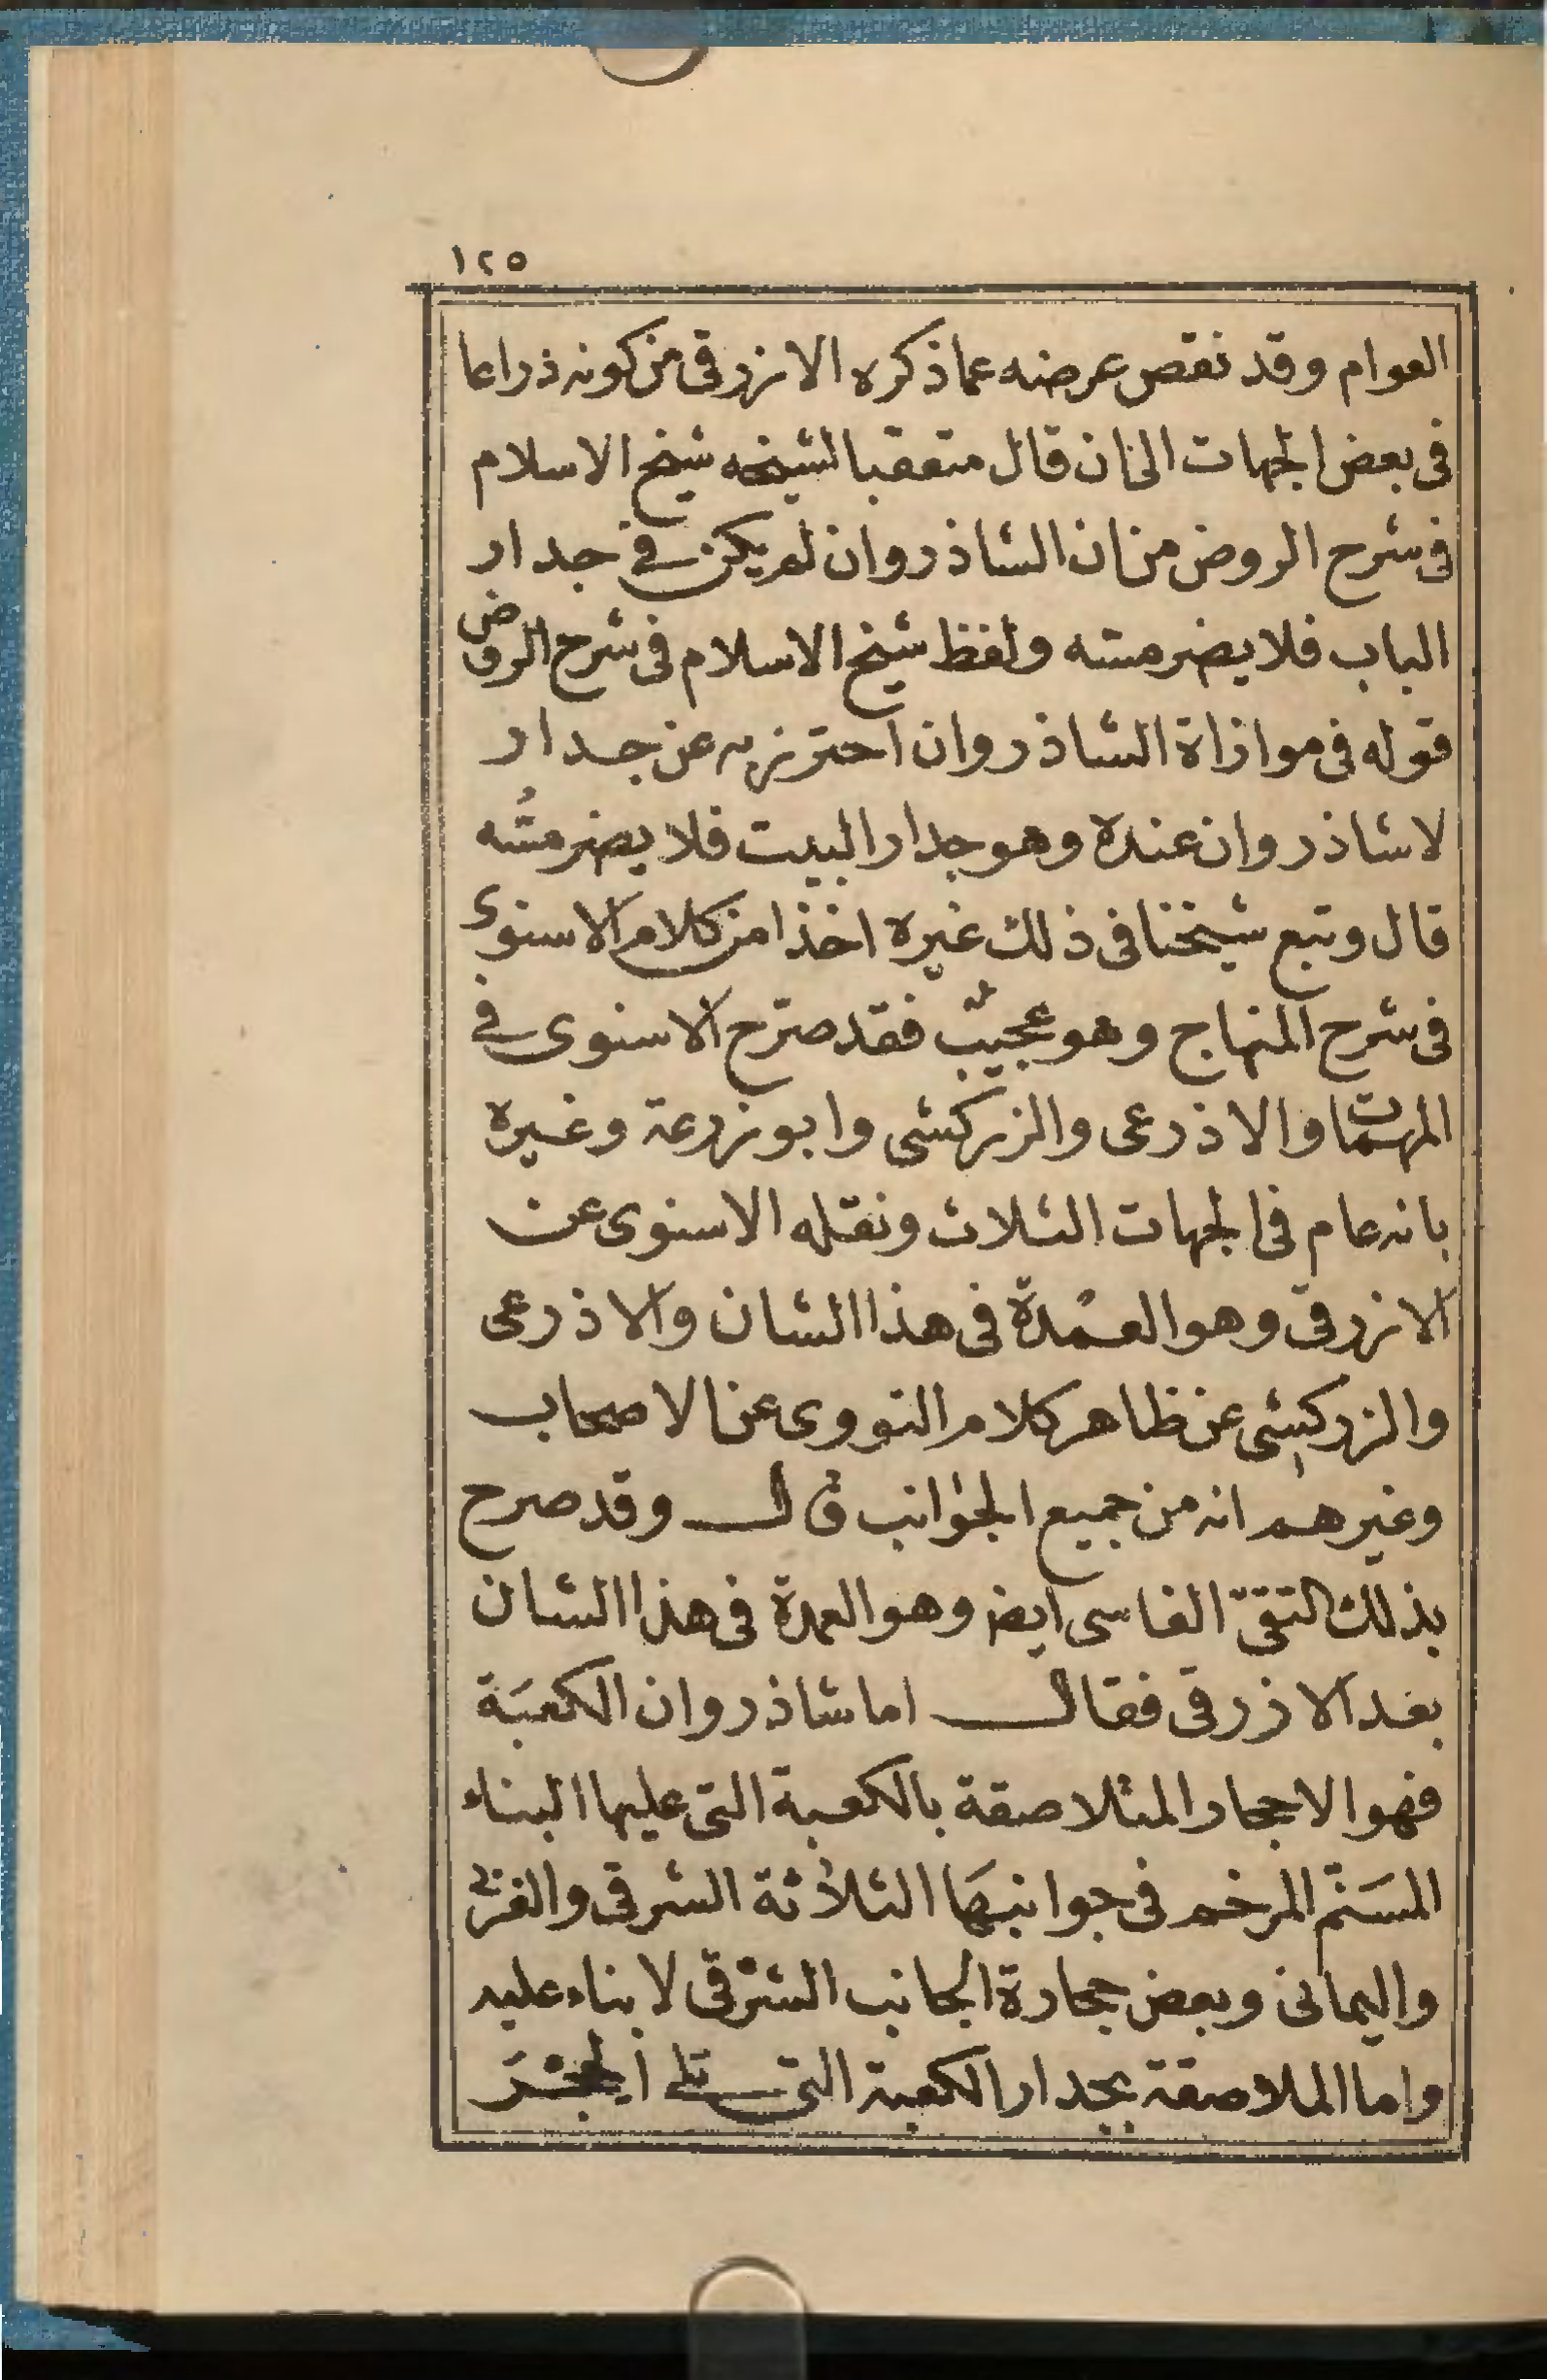 ١٢٥
العوام وقد نقص عرضه عما ذكره الازرقى من كونه ذراعا
فى بعض الجهات الى ان قال متعقبا لشيخه شيخ الاسلام
فى شرح الروض من ان الشاذروان لم يكن في جدار
الباب فلا يضر مسه ولفظ شيخ الاسلام فى شرح الروض
قوله فى موازاة الشاذروان احترز به عن جدار
لا شاذروان عنده وهو جدار البيت فلا يضر مسُّه
قال وتبع شيخنا فى ذلك غيره اخذا من كلام الاسنوى
فى شرح المنهاج وهو عجيب فقد صرّح الاسنوى في
المهمات والاذرعى والزركشى وابو زرعة وغيره
بانه عام فى الجهات الثلاث ونقله الاسنوى عن
الازرقى وهو العمْدة فى هذا الشان والاذرعى
والزركشى عن ظاهر كلام النووى عن الاصحاب
وغيرهم انه من جميع الجوانب قال وقد صرح
بذلك التقىّ الفاسى ايضا وهو العمدة فى هذا الشان
بعد الازرقى فقال اما شاذروان الكعبَة
فهو الاحجار المتلاصقة بالكعبة التى عليها البناء
المسَنّم المرخم فى جوانبهَا الثلاثة الشرقى والغربي
واليمانى وبعض حجارة الجانب الشرْقى لا بناء عليه
واما الملاصقة بجدار الكعبة التى تلي الحجْرَ